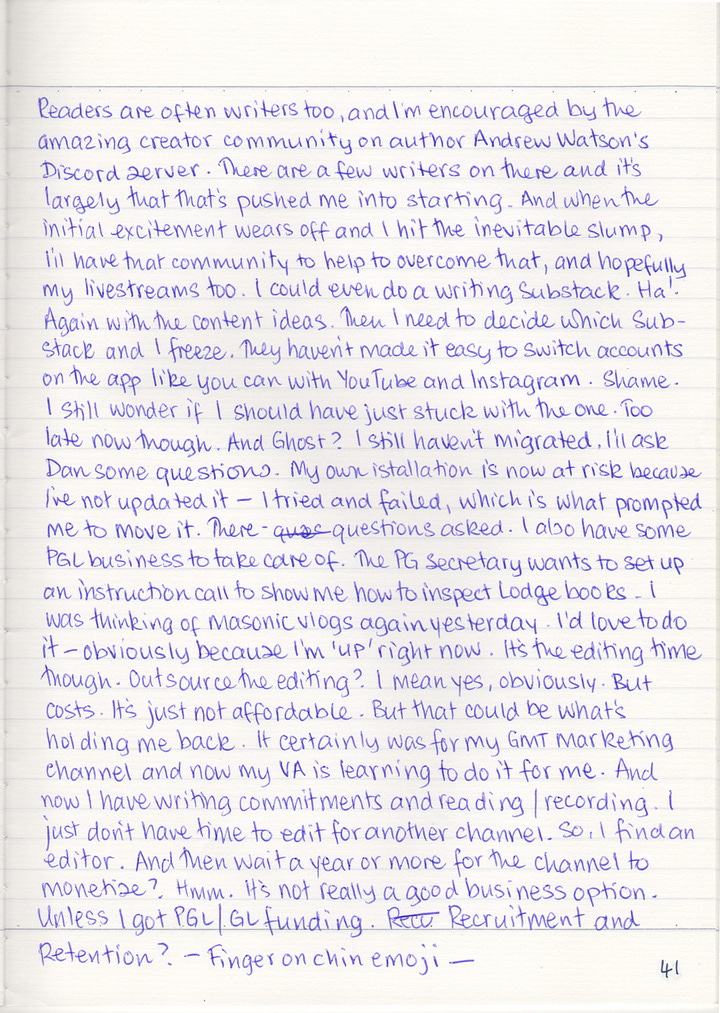 Readers are often writers too, and I'm encouraged by the
amazing creator community on author Andrew Watson's
Discord server. There are a few writers on there and it's
largely that that's pushed me into starting. And when the
initial excitement wears off and I hit the inevitable slump,
I'll have that community to help to overcome that, and hopefully
my livestreams too. I could even do a writing Substack. Ha!
Again with the content ideas. Then I need to decide which Sub-
stack and I freeze. They haven't made it easy to switch accounts
on the app like you can with YouTube and Instagram. Shame.
I still wonder if I should have just stuck with the one. Too
late now though. And Ghost? I still haven't migrated. I'll ask
Dan some questions. My own istallation is now at risk because
I've not updated it – I tried and failed, which is what prompted
me to move it. There - ques questions asked. I also have some
PGL business to take care of. The PG Secretary wants to set up
an instruction call to show me how to inspect Lodge books. I
was thinking of Masonic vlogs again yesterday. I'd love to do
it – obviously because I'm 'up' right now. It's the editing time
though. Outsource the editing? I mean yes, obviously. But
costs. It's just not affordable. But that could be what's
holding me back. It certainly was for my GMT Marketing
channel and now my VA is learning to do it for me. And
now I have writing commitments and reading/recording. I
just don't have time to edit for another channel. So, I find an
editor. And then wait a year or more for the channel to
monetise? Hmm. It's not really a good business option.
Unless I got PGL/GL funding. Recu Recruitment and
Retention? – Finger on chin emoji –
41